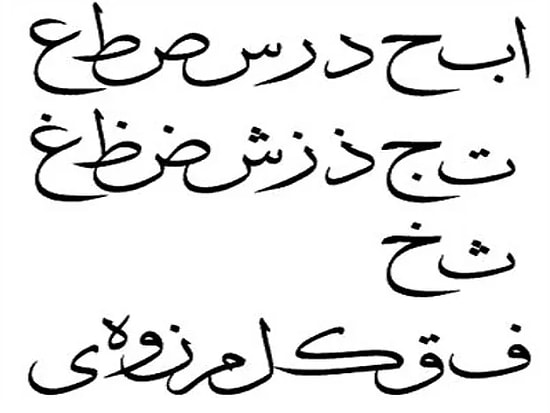 ا ب ح د ر س ص ط ع
ت ج ذ ز ش ض ظ غ
ث خ
ف ق ک ل م ن و ه ی